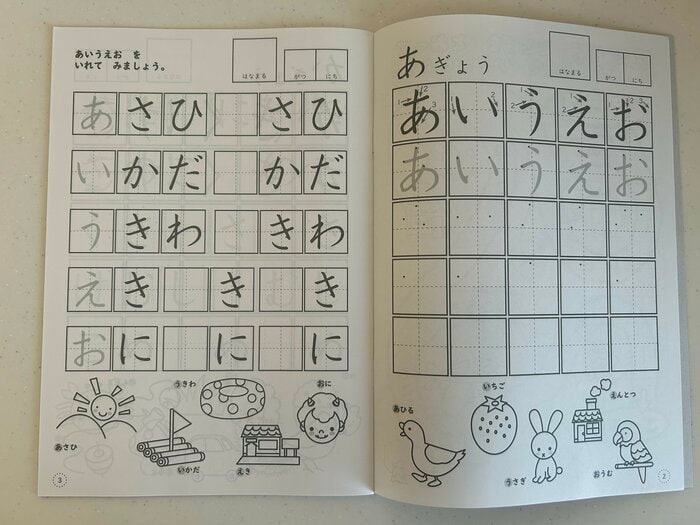 あいうえお を
いれて みましょう。
はなまる
がつ にち
あさひ さひ
いかだ かだ
うきわ きわ
えき き き
おに に に
うきわ
おに
あさひ
いかだ
えき
3
あぎょう
はなまる
がつ にち
あ い う え お
あ い う え お
いちご
えんとつ
あひる
うさぎ
おうむ
2